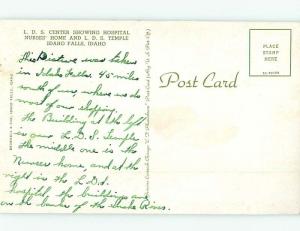 L. D. S. CENTER SHOWING HOSPITAL
NURSES' HOME AND L. D. S. TEMPLE
IDAHO FALLS, IDAHO
this Picture was taken
in Idaho Falls. 45 miles
of our, where we do
most of our shopping.
the Building at the left
is our L. D. S. Temple
the middle one is the
Nurses home, and at the
right is the L.D.S.
Hospital, the buildings are
on the banks of the Snake River.
Post Card
PLACE
STAMP
HERE